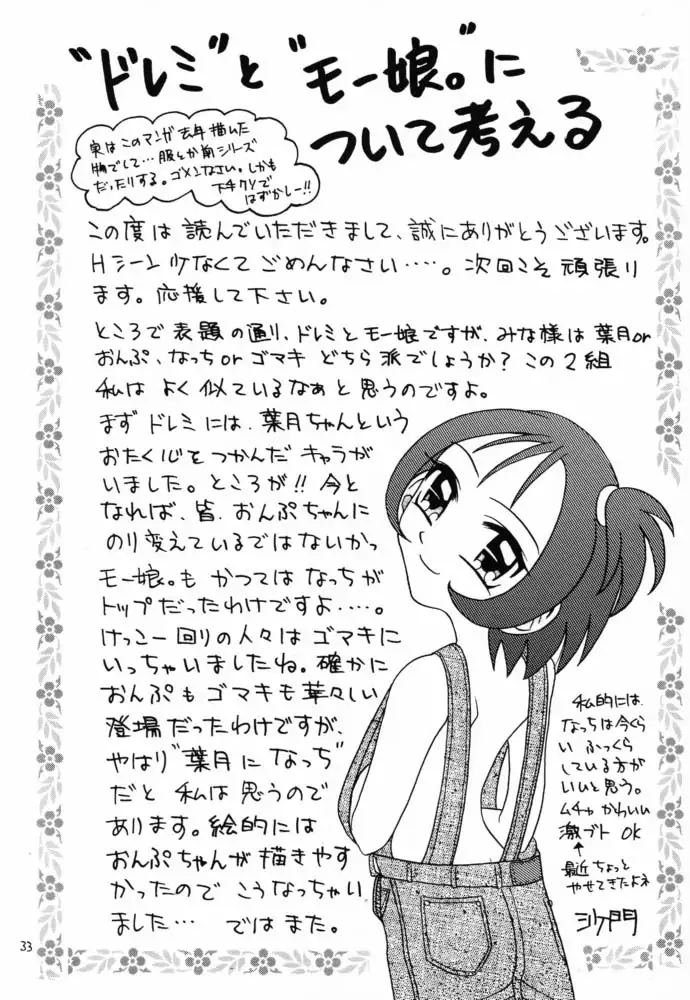 "ドレミ"と"モー娘。"に
ついて考える
実はこのマンガ去年描いた
物でして…服とか前シリーズ
だったりする。ゴメンなさい。しかも
下手クソで
はずかしー!!
この度は読んでいただきまして、誠にありがとうございます。
Hシーン少なくてごめんなさい……。次回こそ頑張り
ます。応援して下さい。
ところで表題の通り、ドレミとモー娘ですが、みな様は葉月or
おんぷ、なっちorゴマキ どちら派でしょうか?この2組
私はよく似ているなぁと思うのですよ。
まずドレミには、葉月ちゃんという
おたく心をつかんだキャラが
いました。ところが!!今と
なれば、皆、おんぷちゃんに
のり変えているではないかっ
モー娘。もかつてはなっちが
トップだったわけですよ……。
けっこー回りの人々はゴマキに
いっちゃいましたね。確かに
おんぷもゴマキも華々しい
登場だったわけですが、
やはり"葉月になっち"
だと私は思うので
あります。絵的には
おんぷちゃんが描きやす
かったのでこうなっちゃい
ました… ではまた。
私的には、
なっちは今ぐら
いふっくら
している方が
いいと思う。
ムチャかわいい
激ブトOK
↑
最近ちょっと
やせてきたよネ
沙門
33